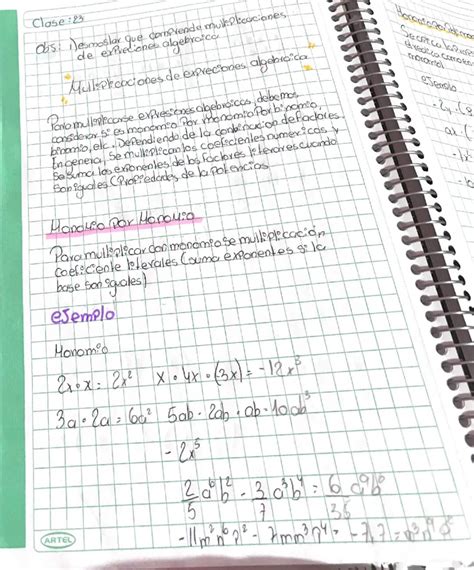 Clase: 23
obs: Desmostar que comprende multiplicaciones
de expreciones algebraica
Multiplicaciones de expreciones algebraica
Para multiplicarse expresiones algebraicas, debemos
considerar si es monomio Por monomio Por binomio,
binomio, etc. Dependiendo de la combinacion de factores.
En general, se multiplican los coeficientes numericos y
se suma los exponentes de los factores literares cuando
son iguales (Propiedades de la potencias
Monomio Por Monomio
Para multiplicar con monomio se multiplicación
coeficiente literales (suma exponentes si la
base son iguales)
eJemplo
Monomio
2x • x = 2x² x • 4x • (3x) = -12x³
3a • 2a = 6a² 5ab - 2ab • ab • 10ab³
- 2x⁵
2/5 a⁶b² - 3/7 a³b⁴ = 6/35 a⁹b⁶
ARTEL
eJemplo